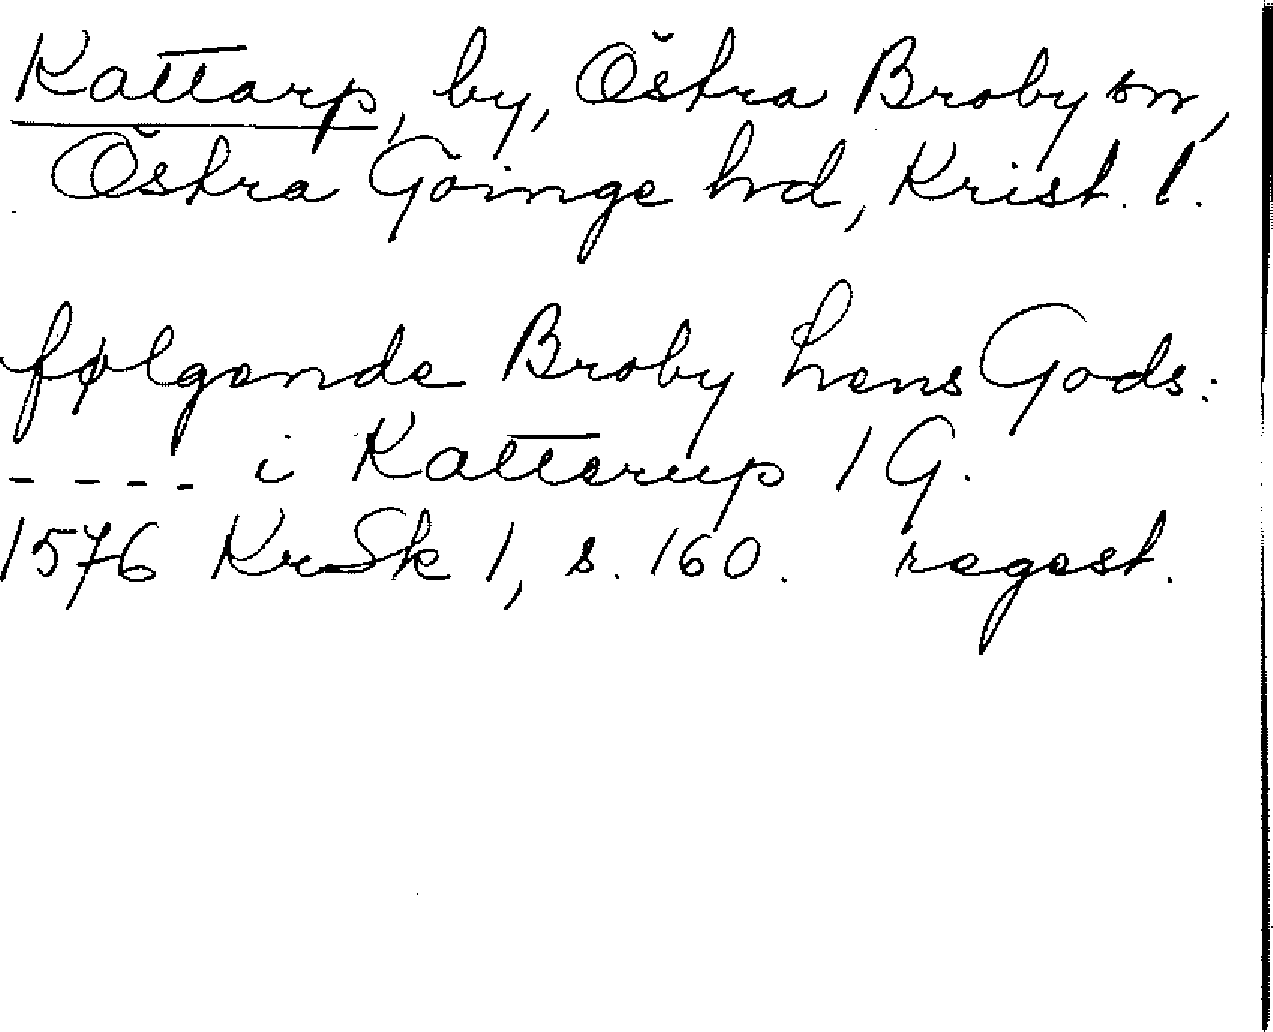 Kattarp, by, Östra Broby sn,
Östra Göinge hd, Krist. l.
følgende Broby Lens Gods:
- - - - i Katterup 1 G.
1576 KrSk 1, s. 160. regest.